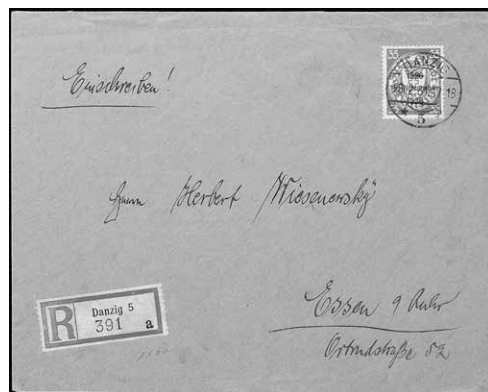 Einschreiben!
35
DANZIG
5
Herrn Herbert Wiesenewsky
R
Danzig 5
391 a
Essen a Ruhr
Ortrudstraße 52